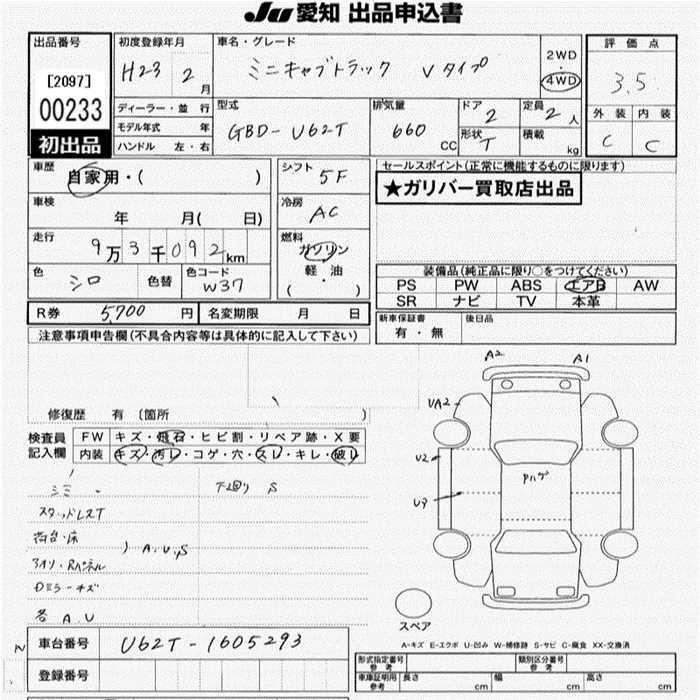 JU 愛知 出品申込書
出品番号
[2097]
00233
初出品
初度登録年月
H23 2月
車名・グレード
ミニキャブトラック Vタイプ
2WD
4WD
評価点
3.5
外装 内装
C C
ディーラー・並行
モデル年式 年
ハンドル 左・右
型式
GBD-U62T
排気量
660 CC
ドア
2
形状
T
定員
2人
積載
kg
車歴
自家用・( )
シフト
5F
セールスポイント(正常に機能するものに限ります)
★ガリバー買取店出品
車検
年 月( 日)
冷房
AC
走行
9万3千092km
燃料
ガソリン
軽・油
( ・ )
色
シロ
色替
色コード
W37
装備品(純正品に限り○をつけてください)
PS PW ABS エアB AW
SR ナビ TV 本革
R券 5,700円
名変期限 月 日
新車保証書
有・無
後日品
注意事項申告欄(不具合内容等は具体的に記入して下さい)
修復歴 有 〔箇所 〕
検査員
記入欄
FW キズ・飛石・ヒビ割・リペア跡・X要
内装 キズ・汚レ・コゲ・穴・スレ・キレ・破レ
下廻り S
スタッドレスT
荷台・床
A.U.S
Dミラーキズ
各 A.U
A2 A1
UA2
U2
U9
スペア
A-キズ E-エクボ U-凹み W-補修跡 S-サビ C-腐食 XX-交換済
車台番号 U62T-1605293
登録番号
形式指定番号
参考
類別区分番号
参考
車庫証明用
参考
長さ cm 幅 cm 高さ cm